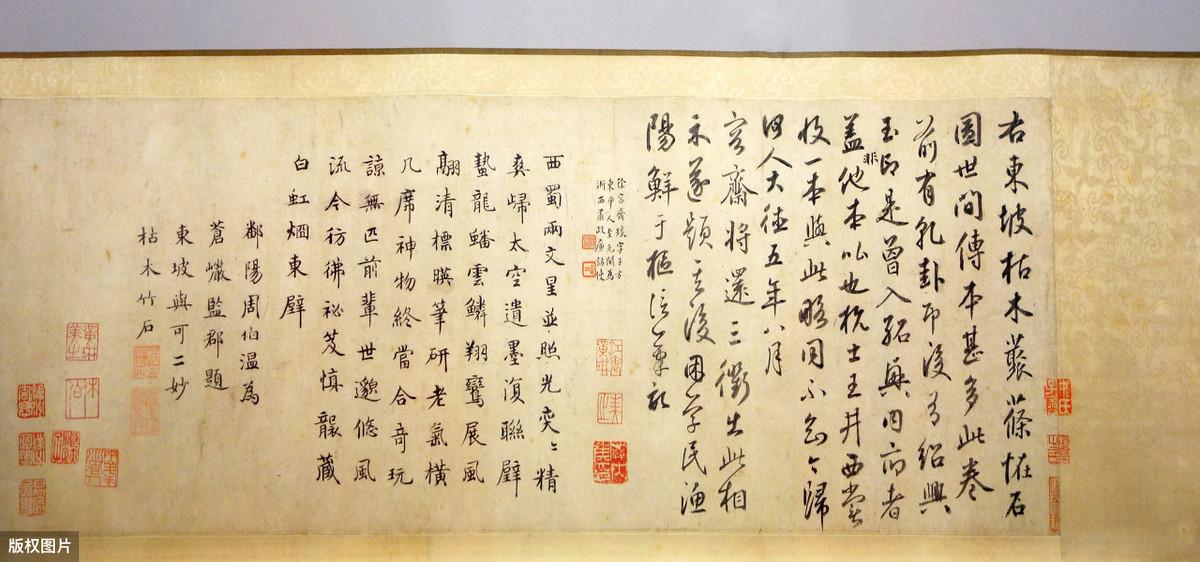 右東坡枯木叢篠恠石
圖世間傳本甚多此卷
前有乳卦印後有紹興
玉印是曾入紹興內府者
蓋非他本比也杭士王井西嘗
收一本與此略同不知今歸
何人大德五年八月
容齋將還三衢出此相
示遂題其後困學民漁
陽鮮于樞伯幾父記
徐容齋琰字子方
東平人至元間為
浙西肅政廉訪使
西蜀兩文星並照光奕〻精
爽歸太空遺墨復聯璧
蟄龍蟠雲鱗翔鸞展風
翮清標暎筆研老氣橫
几席神物終當合奇玩
諒無匹前輩世邈悠風
流今彷彿祕芨慎襲藏
白虹烟東壁
鄱陽周伯溫為
蒼巘監郡題
東坡與可二妙
枯木竹石
版权图片